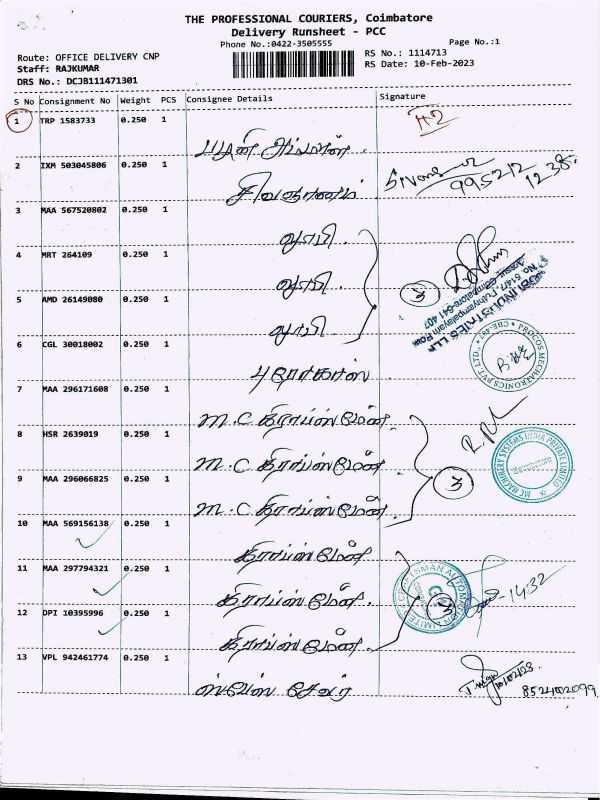 THE PROFESSIONAL COURIERS, Coimbatore
Delivery Runsheet - PCC
Phone No.:0422-3505555
Page No.:1
Route: OFFICE DELIVERY CNP
RS No.: 1114713
Staff: RAJKUMAR
RS Date: 10-Feb-2023
DRS No.: DCJB111471301
S No Consignment No Weight PCS Consignee Details Signature
1 TRP 1583733 0.250 1
2 IXM 503045806 0.250 1
சிவஞானம்
3 MAA 567520802 0.250 1
4 MRT 264109 0.250 1
5 AMD 26149080 0.250 1
3
INDUSTRIES LLP
641 407
6 CGL 30018002 0.250 1
புரோகாஸ்
PROCOS MECHATRONICS PVT. LTD.,
7 MAA 296171608 0.250 1
M.C கிராப்ஸ்மேன்
8 HSR 2639019 0.250 1
M.C கிராப்ஸ்மேன்
9 MAA 296066825 0.250 1
M.C கிராப்ஸ்மேன்
3
MACHINERY SYSTEMS INDIA PRIVATE LIMITED
10 MAA 569156138 0.250 1
கிராப்ஸ்மேன்
11 MAA 297794321 0.250 1
கிராப்ஸ்மேன்.
3
CRAFTSMAN AUTOMATION LIMITED
14:32
12 DPI 10395996 0.250 1
கிராப்ஸ்மேன்
13 VPL 942461774 0.250 1
ஸ்பேஸ் சேவர்
10/02/23